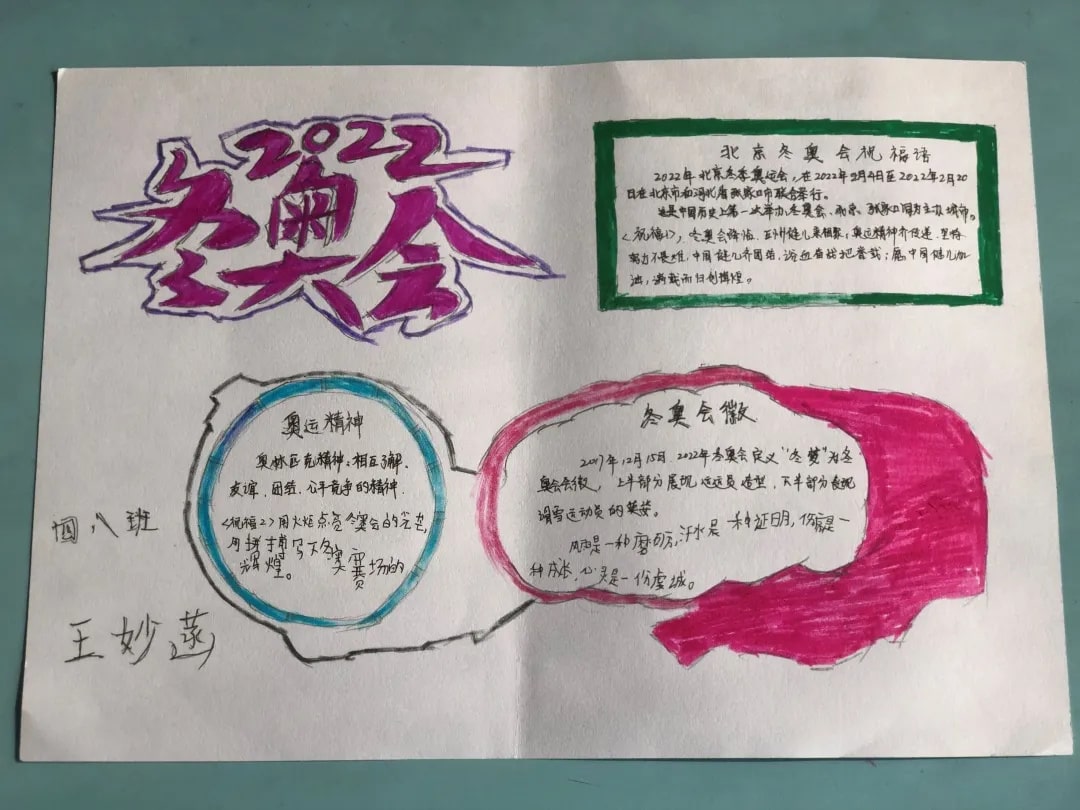 2022
冬奥会
大
北京冬奥会祝福语
2022年北京冬季奥运会,在2022年2月4日至2022年2月20
日在北京市和河北省张家口市联合举行。
这是中国历史上第一次举办冬奥会、北京、张家口同为主办城市。
<祝福1>,冬奥会降临,五洲健儿来相聚;奥运精神齐传递,坚持
努力不畏难,中国健儿齐团结,浴血奋战把誉载;愿中国健儿加
油,满载而归创辉煌。
奥运精神
奥林匹克精神:相互了解、
友谊、团结、公平竞争的精神.
<祝福2>用火炬点亮冬奥会的光芒,
用拼搏写下冬奥赛场的
辉煌。
冬奥会徽
2017年12月15日,2022年冬奥会定义"冬梦"为冬
奥会会徽,上半部分展现 造型,下半部分表现
滑雪运动员的英姿。
风雨是一种磨历,汗水是一种证明,伤痛是一
种成长,心灵是一份虔诚。
四八班
王妙